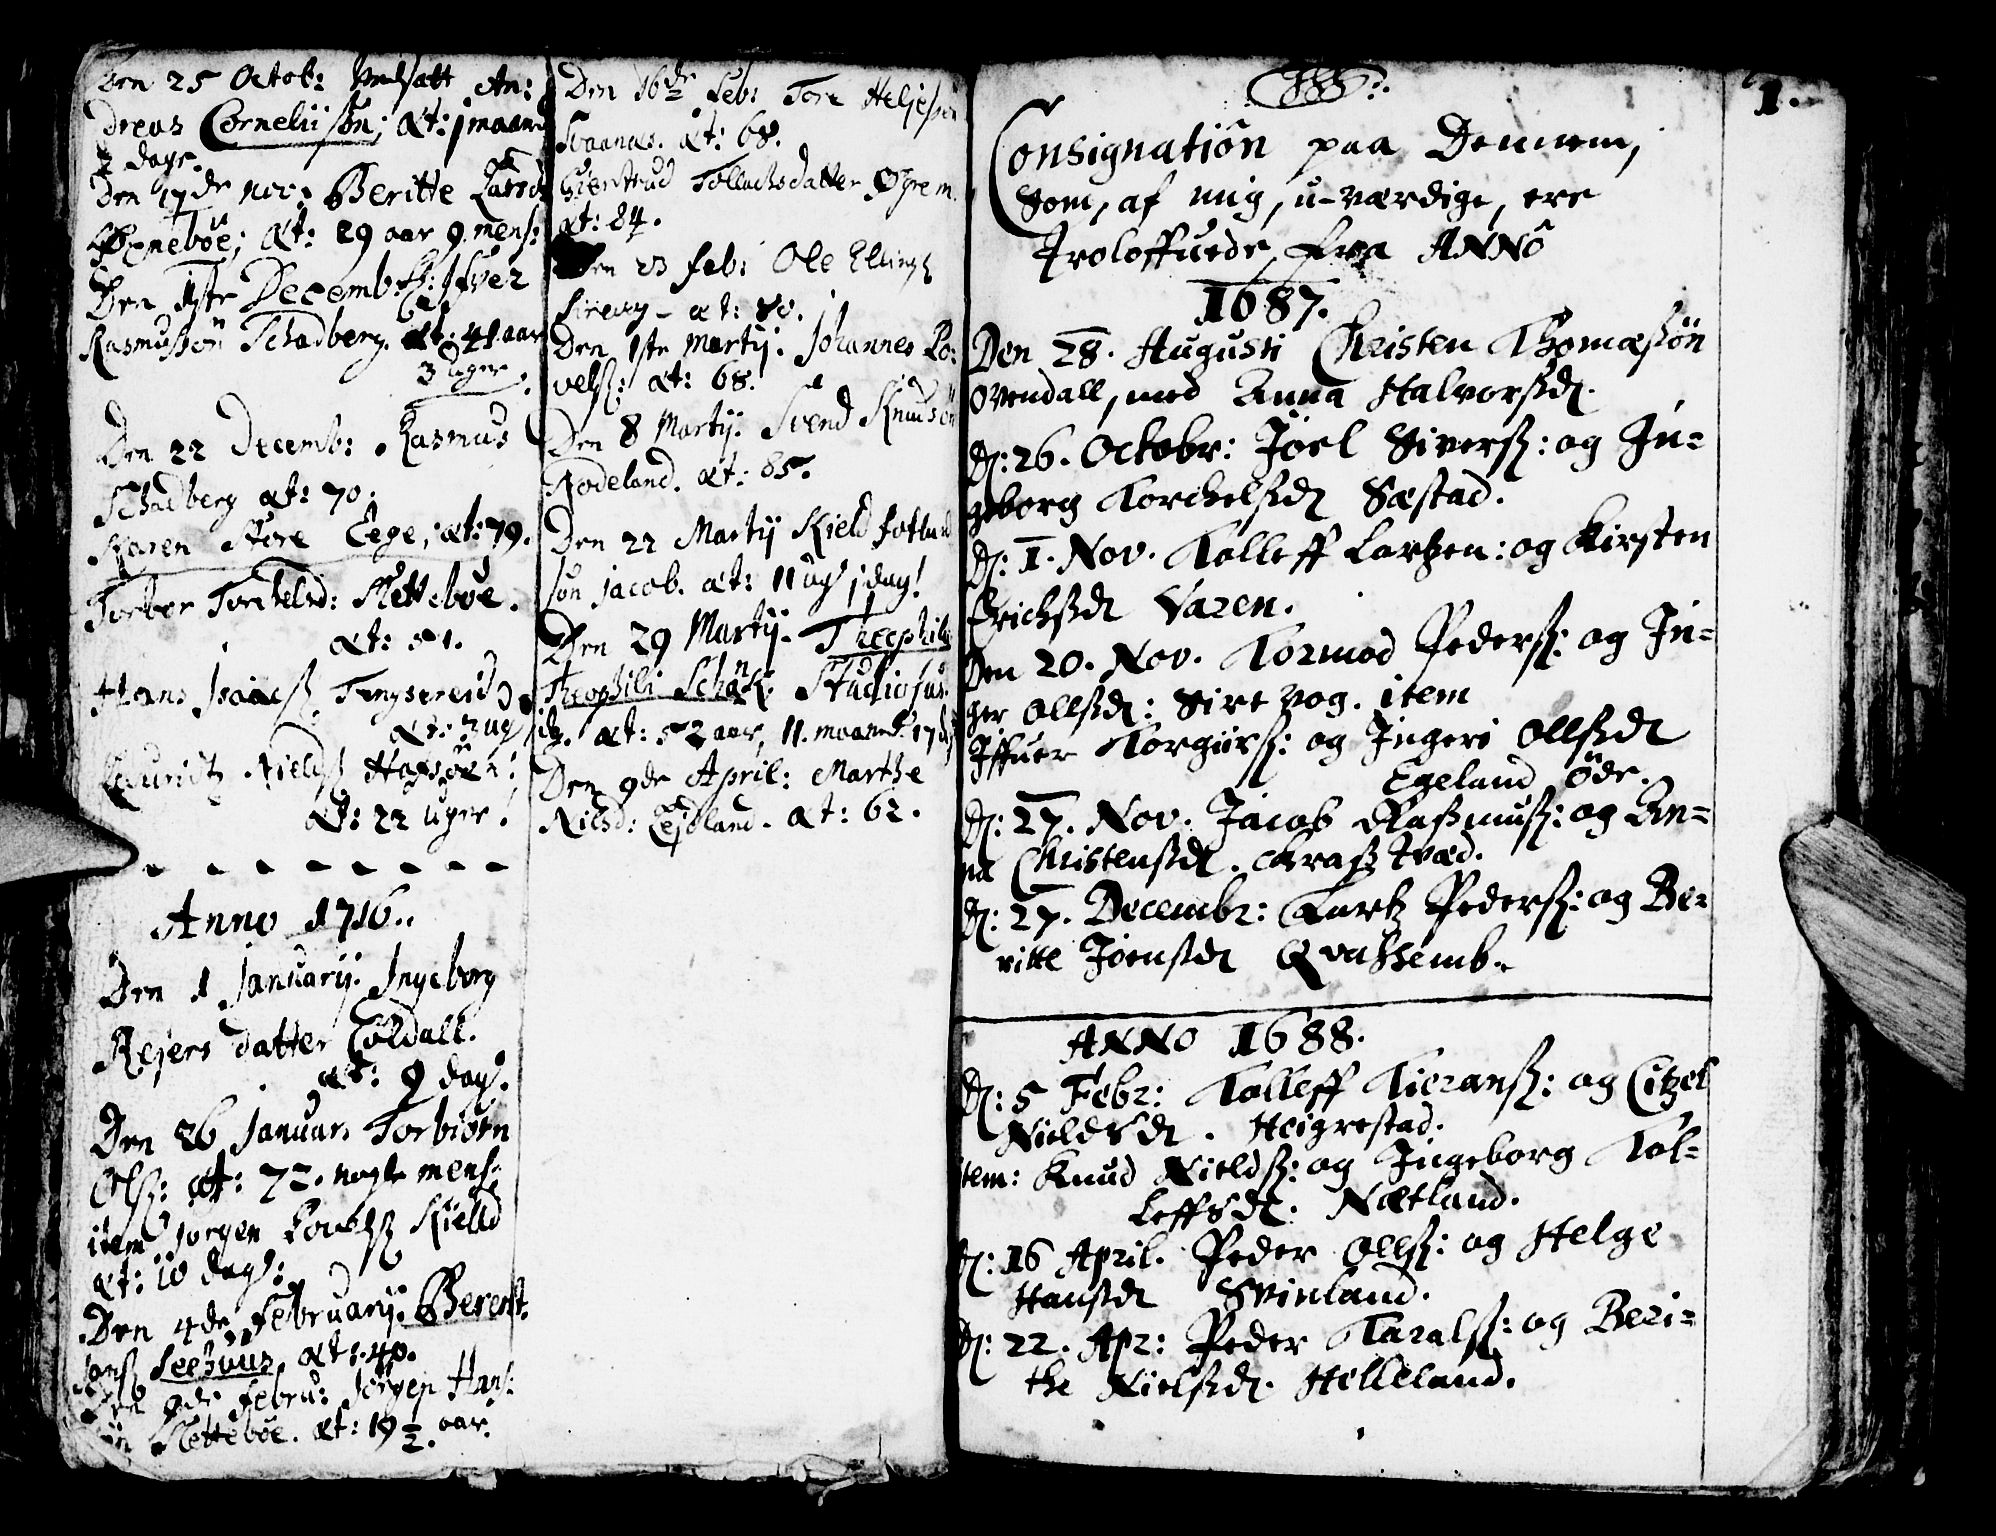 Den 25 Octob: An:
dreas Cornelii søn; æt: 1 maan
2 dage.
Den 17de nov: Beritte Lars
æt: 29 aar 9 mens:
Den 1ste Decemb: Ifver
Rasmussøn Schadberg. æt: 41 aar
3 uger.
Den 22 Decemb: Rasmus
Schadberg æt: 70.
Karen Store Eege; æt: 79.
Torbor Torchelsd: Slettebøe.
æt: 51.
Hans Isaacs
æt: 3 ug
Lauritz Nields
æt: 22 uger!
Anno 1716.
Den 1 Januarij. Ingeborg
Rejers datter Eoldall.
æt: 9 dag.
Den 26 Januar. Torbiørn
Ols: æt: 72. nogle mens:
item Jørgen Povels Kielld
æt: 10 dag:
Den 4de Februarij. Berent
Jans Leehuus. æt: 40.
Den 9de Febru: Jørgen Hans:
søn Slettebøe. æt: 19 1/2 aar.
Den 16de Feb: Tore Heljessøn
Svaanes. æt: 68.
Giertrud Tollachsdatter
æt: 84.
Den 23 Feb: Ole Ellings
æt: 80.
Den 1ste Martij. Johannes Po:
vels: æt: 68.
Den 8 Martij. Svend Knudsøn
Rodeland. æt: 85.
Den 22 Martij Kield
søn Jacob. æt: 11 ug 1 dag!
Den 29 Martij. Theophilus
Theophili Studiosus.
æt: 52 aar, 11. maand. 17 d
Den 9de April: Marthe
Nilsd: Lejdland. æt: 62.
1.
Consignation paa Dennem,
Som, af mig, u-værdige, ere
Troloffuede, fra ANNO
1687.
Den 28. Augusti Christen Thomæsøn
Ovendall, med Anna Halvorsdr.
D: 26. Octobr: Joel Sivers: og In-
geborg Torchelsdr Sæstad.
D: 1. Nov. Tolleff Lartzen: og Kirsten
Erichsdr Varen.
Den 20. Nov. Tormod Peders: og In-
ger Ollsdr: Sirevog. item
Iffuer Torgiirs: og Ingeri Ollsdr
Egeland Øde.
D: 27. Nov. Jacob Rasmus: og An-
na Christensdr.
D: 27. Decembr: Lartz Peders: og Be-
ritte Joensdr Qvassemb.
ANNO 1688.
D: 5 Febr: Tolleff Tierans: og Citzel
Nieldsdr. Heigrestad.
item: Knud Nields: og Ingeborg Tol-
leffsdr. Nætland.
D: 16 April. Peder Olls: og Helge
Hansdr Svinland.
D: 22. Apr: Peder Tarals: og Beri-
the Nielsdr. Helleland.